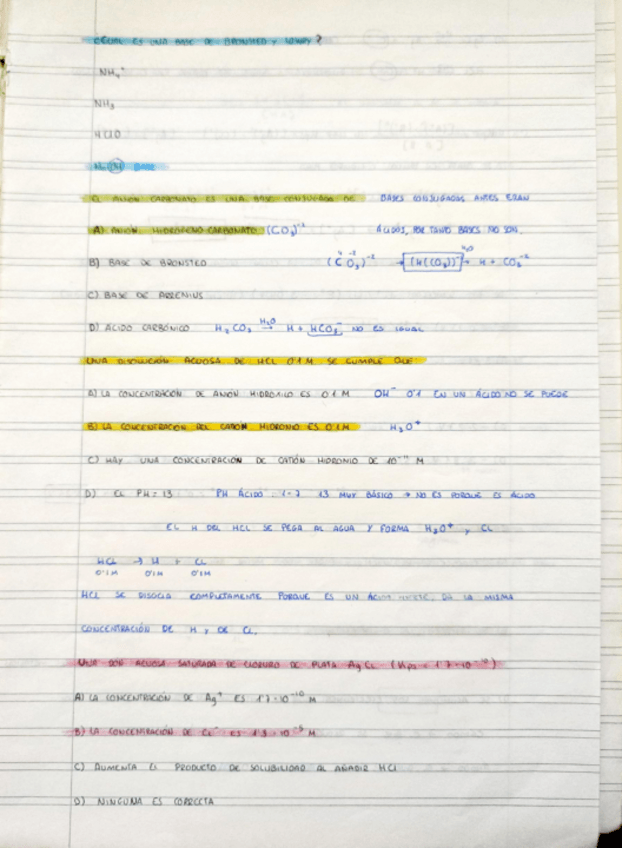 ¿CUAL ES UNA BASE DE BRONSTED Y LOWRY?
NH₄⁺
NH₃
HClO
Na(OH) BASE
EL ANION CARBONATO ES UNA BASE CONJUGADA DE BASES CONJUGADAS ANTES ERAN
A) ANION HIDROGENO CARBONATO (CO₃)⁻² ÁCIDOS, POR TANTO BASES NO SON.
B) BASE DE BRONSTED (CO₃)⁻² → (H(CO₃))⁻ H₂O → H + CO₃⁻²
C) BASE DE ARRENIUS
D) ACIDO CARBÓNICO H₂CO₃ H₂O → H + HCO₃⁻ NO ES IGUAL
UNA DISOLUCION ACUOSA DE HCL 0'1 M SE CUMPLE QUE:
A) LA CONCENTRACION DE ANION HIDROXILO ES 0'1 M OH⁻ 0'1 EN UN ÁCIDO NO SE PUEDE
B) LA CONCENTRACION DEL CATIÓN HIDRONIO ES 0'1M H₃O⁺
C) HAY UNA CONCENTRACIÓN DE CATIÓN HIDRONIO DE 10⁻¹¹ M
D) EL PH = 13 PH ÁCIDO: 1-7 13 MUY BÁSICO → NO ES PORQUE ES ÁCIDO
EL H DEL HCL SE PEGA AL AGUA Y FORMA H₃O⁺, CL
HCL → H + CL
0'1M 0'1M 0'1M
HCL SE DISOCIA COMPLETAMENTE PORQUE ES UN ÁCIDO FUERTE, DA LA MISMA
CONCENTRACIÓN DE H Y DE CL.
UNA DON ACUOSA SATURADA DE CLORURO DE PLATA AgCL (Kps = 1'7·10⁻¹⁰)
A) LA CONCENTRACIÓN DE Ag⁺ ES 1'7·10⁻¹⁰ M
B) LA CONCENTRACIÓN DE CL⁻ ES 1'3·10⁻⁵ M
C) AUMENTA EL PRODUCTO DE SOLUBILIDAD AL AÑADIR HCl
D) NINGUNA ES CORRECTA